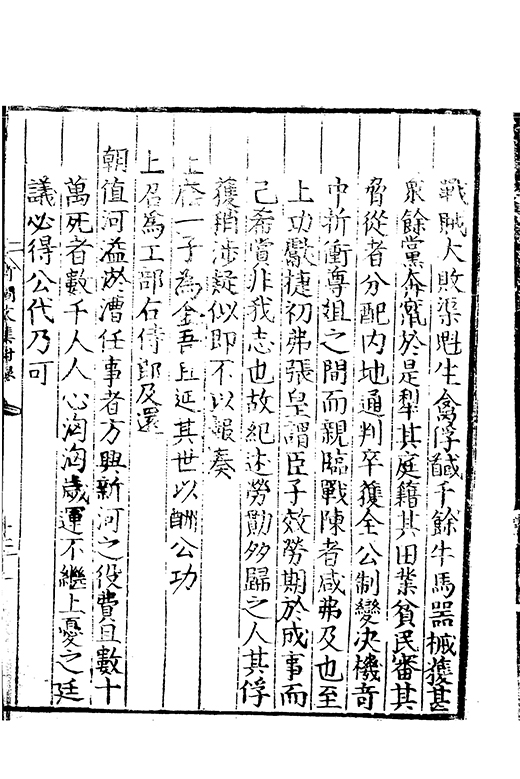 戰賊大敗渠魁生禽俘馘千餘牛馬器械獲甚
衆餘黨奔潰於是犁其庭籍其田業貧民審其
脅從者分配内地通判卒獲全公制變決機竒
中折衝尊俎之間而親臨戰陳者咸弗及也至
上功獻捷初弗張皇謂臣子效勞期於成事而
已希賞非我志也故紀述勞勩多歸之人其俘
獲稍涉疑似即不以報奏
上廕一子為金吾丘延其世以酬公功
上召爲工部右侍郎及還
朝值河溢淤漕任事者方興新河之役費且數十
萬死者數千人人心洶洶歲運不繼上憂之廷
議必得公代乃可